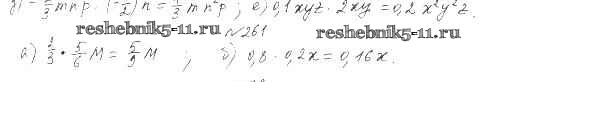 mnp · (-1/2)n = 1/3 mn²p ; е) 0,1xyz · 2xy = 0,2x²y²z.
reshebnik5-11.ru №261 reshebnik5-11.ru
а) 2/3 · 5/6 м = 5/9 м ; б) 0,8 · 0,2x = 0,16x.